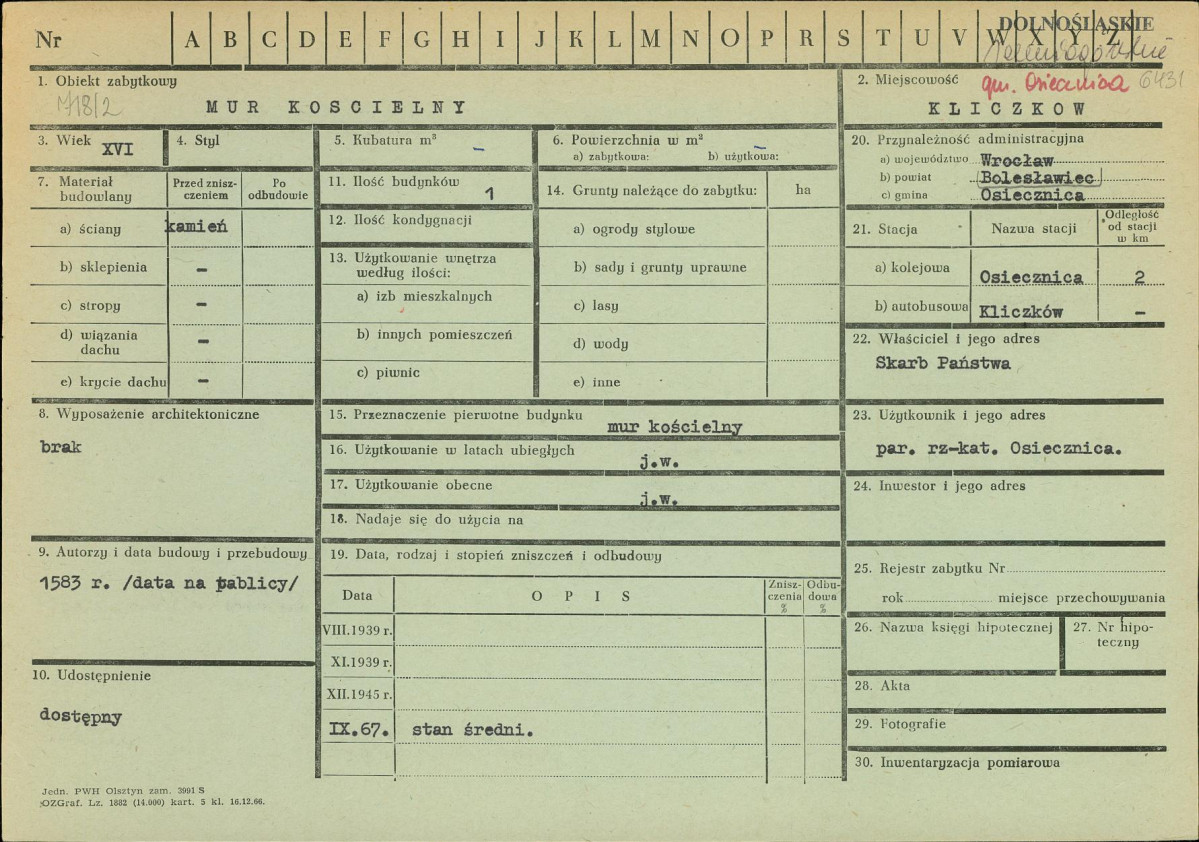 Nr A B C D E F G H I J K L M N O P R S T U V W X Y Z
DOLNOŚLĄSKIE
1. Obiekt zabytkowy
718/2
MUR KOSCIELNY
2. Miejscowość
gm. Osiecznica 6431
KLICZKOW
3. Wiek XVI
4. Styl
5. Kubatura m³ –
6. Powierzchnia w m² –
a) zabytkowa: b) użytkowa:
7. Materiał budowlany
Przed znisz-
czeniem
Po
odbudowie
a) ściany kamień
b) sklepienia –
c) stropy –
d) wiązania
dachu –
e) krycie dachu –
11. Ilość budynków 1
12. Ilość kondygnacji
13. Użytkowanie wnętrza
według ilości:
a) izb mieszkalnych
b) innych pomieszczeń
c) piwnic
14. Grunty należące do zabytku: ha
a) ogrody stylowe
b) sady i grunty uprawne
c) lasy
d) wody
e) inne
20. Przynależność administracyjna
a) województwo Wrocław
b) powiat Bolesławiec
c) gmina Osiecznica
21. Stacja
Nazwa stacji
Odległość
od stacji
w km
a) kolejowa Osiecznica 2
b) autobusowa Kliczków –
22. Właściciel i jego adres
Skarb Państwa
8. Wyposażenie architektoniczne
brak
15. Przeznaczenie pierwotne budynku
mur kościelny
16. Użytkowanie w latach ubiegłych
j.w.
17. Użytkowanie obecne
j.w.
18. Nadaje się do użycia na
23. Użytkownik i jego adres
par. rz-kat. Osiecznica.
24. Inwestor i jego adres
9. Autorzy i data budowy i przebudowy
1583 r. /data na tablicy/
19. Data, rodzaj i stopień zniszczeń i odbudowy
Data OPIS
Znisz-
czenia
%
Odbu-
dowa
%
VIII.1939 r.
XI.1939 r.
XII.1945 r.
IX.67. stan średni.
25. Rejestr zabytku Nr
rok miejsce przechowywania
26. Nazwa księgi hipotecznej
27. Nr hipo-
teczny
10. Udostępnienie
dostępny
28. Akta
29. Fotografie
30. Inwentaryzacja pomiarowa
Jedn. PWH Olsztyn zam. 3991 S
OZGraf. Lz. 1882 (14.000) kart. 5 kl. 16.12.66.